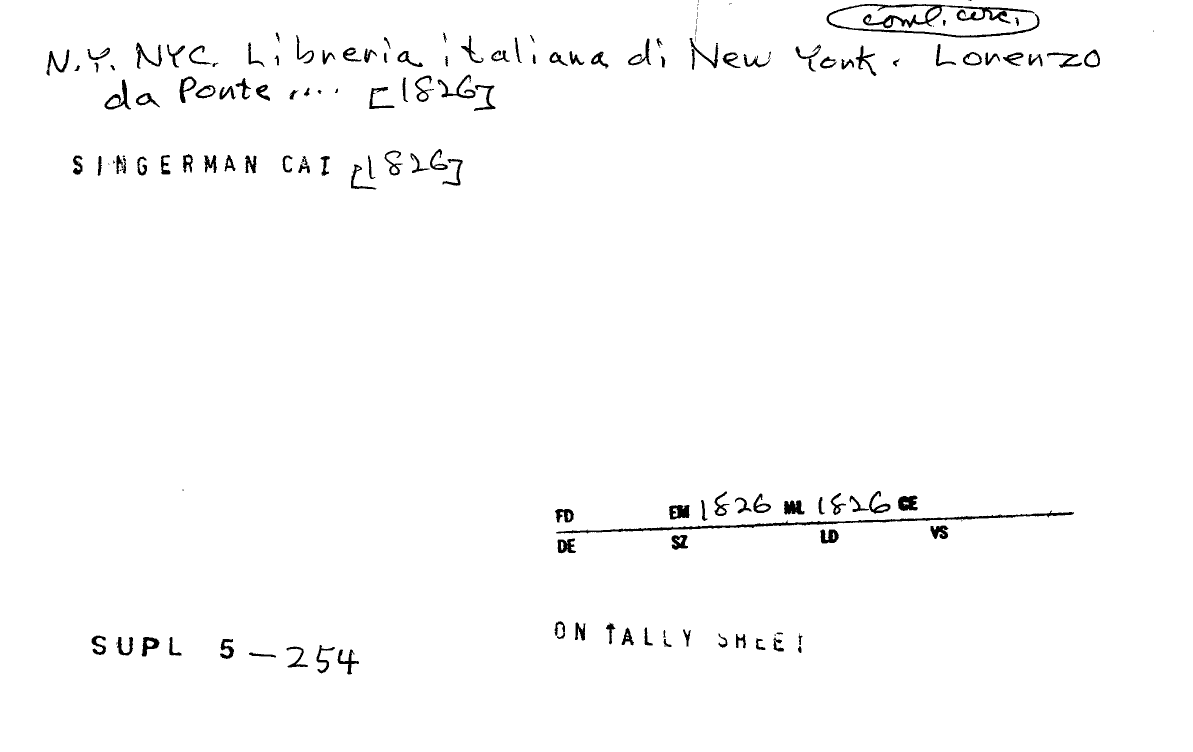 coml. circ.
N.Y. NYC. Libreria italiana di New York. Lorenzo
da Ponte .... [1826]
SINGERMAN CAI [1826]
FD EM 1826 ML 1826 CE
DE SZ LD VS
ON TALLY SHEET
SUPL 5 — 254